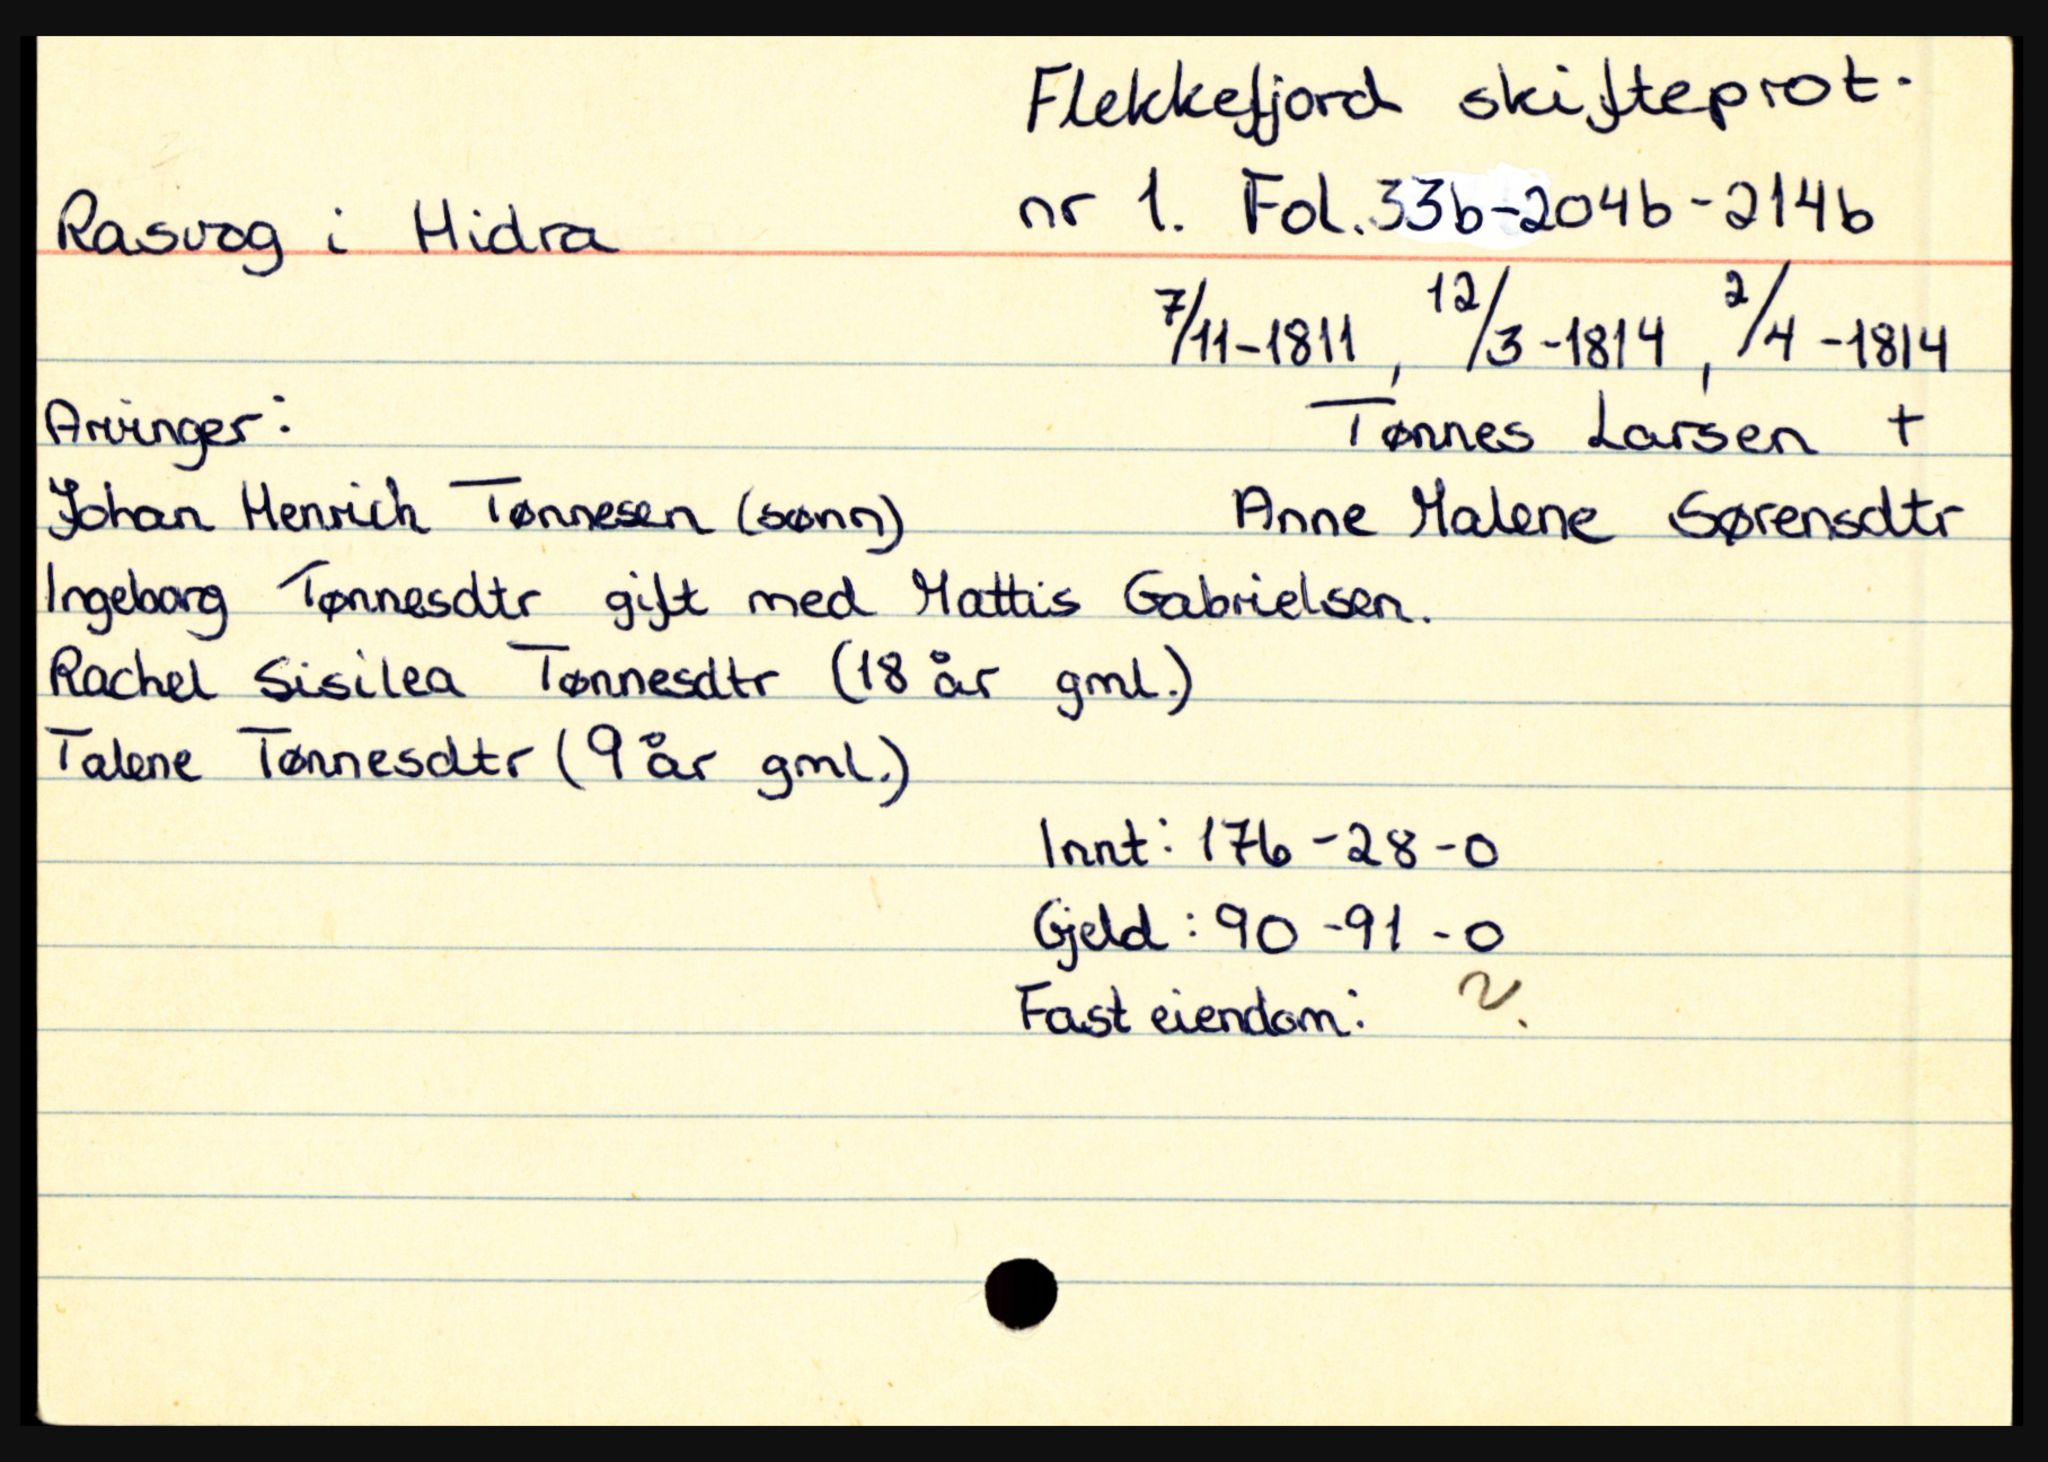 Flekkefjord skifteprot.
nr 1. Fol. 33b-204b-214b
Rasvog i Hidra
7/11-1811, 12/3-1814, 2/4-1814
Arvinger:
Tønnes Larsen +
Johan Henrich Tønnesen (sønn)
Anne Malene Sørensdtr
Ingeborg Tønnesdtr gift med Mattis Gabrielsen.
Rachel Sisilea Tønnesdtr (18 år gml.)
Talene Tønnesdtr (9 år gml.)
Innt: 176-28-0
Gjeld: 90-91-0
Fast eiendom: